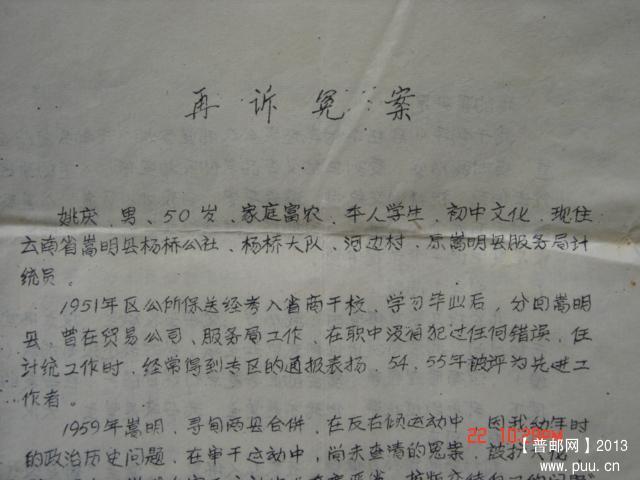 再诉冤案
姚庆、男、50岁、家庭富农、本人学生、初中文化、现住
云南省嵩明县杨桥公社、杨桥大队、河边村、原嵩明县服务局计
统员。
1951年区公所保送经考入省商干校、学习毕业后，分回嵩明
县、曾在贸易公司、服务局工作、在职中没有犯过任何错误、任
计统工作时、经常得到专区的通报表扬、54、55年被评为先进工
作者。
1959年嵩明、寻甸两县合併、在反右倾运动中、因我幼年时
的政治历史问题、在审干运动中、尚未查清的冤案、被
22 10:29PM
【普邮网】2013
www.puu.cn